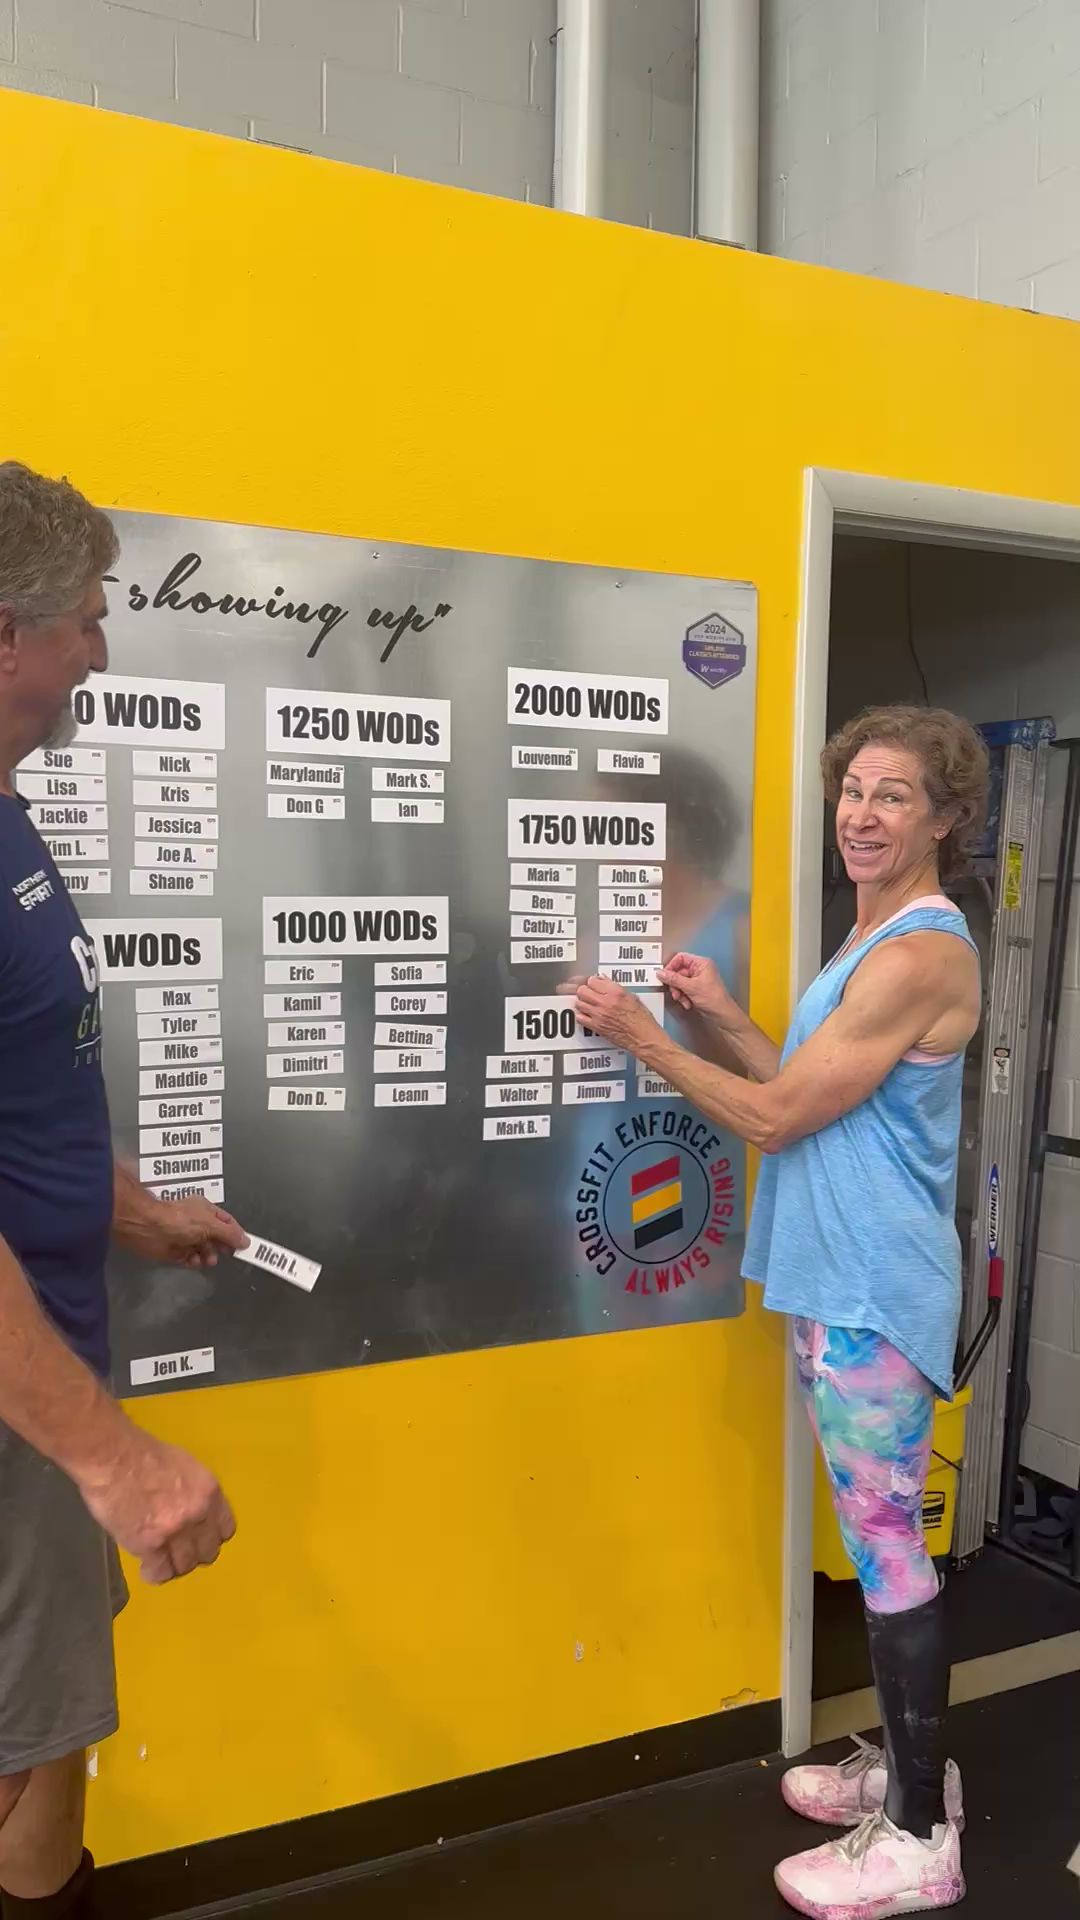 showing up"
2024
wodify
0 WODs
Sue
Nick
Lisa
Kris
Jackie
Jessica
Kim L.
Joe A.
Shane
WODs
Max
Tyler
Mike
Maddie
Garret
Kevin
Shawna
Griffin
Rich L.
Jen K.
1250 WODs
Marylanda
Mark S.
Don G
Ian
1000 WODs
Eric
Sofia
Kamil
Corey
Karen
Bettina
Dimitri
Erin
Don D.
Leann
2000 WODs
Louvenna
Flavia
1750 WODs
Maria
John G.
Ben
Tom O.
Cathy J.
Nancy
Shadie
Julie
Kim W.
1500
Matt H.
Denis
Walter
Jimmy
Mark B.
CROSSFIT ENFORCE
ALWAYS RISING
NORTHERN
SPIRIT
WERNER